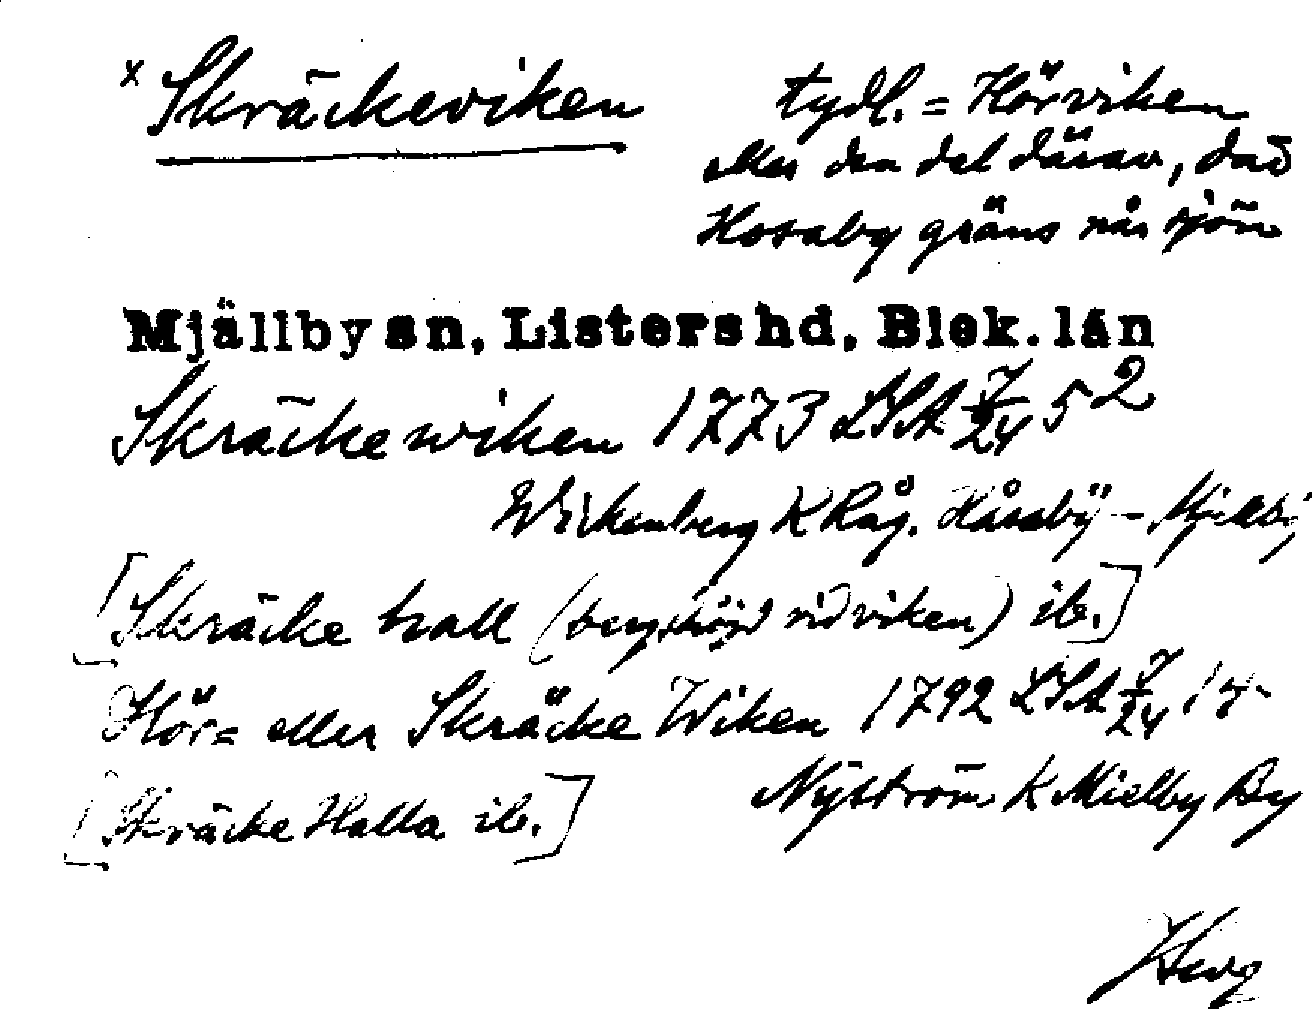 x Skräckeviken
tydl. = Hörviken
eller den del därav, där
Hosaby gräns når sjön
Mjällby sn, Listers hd, Blek. län
Skräckewiken 1773 LSA I/24 5²
Wickenberg K Råg. Håsabÿ - Mjelby
[Skräcke hall (bergshöjd vid viken) ib.]
Hör= eller Skräcke Wiken 1792 LSA I/24 14
Nyström K Mielby By
[Skräcke Halla ib.]